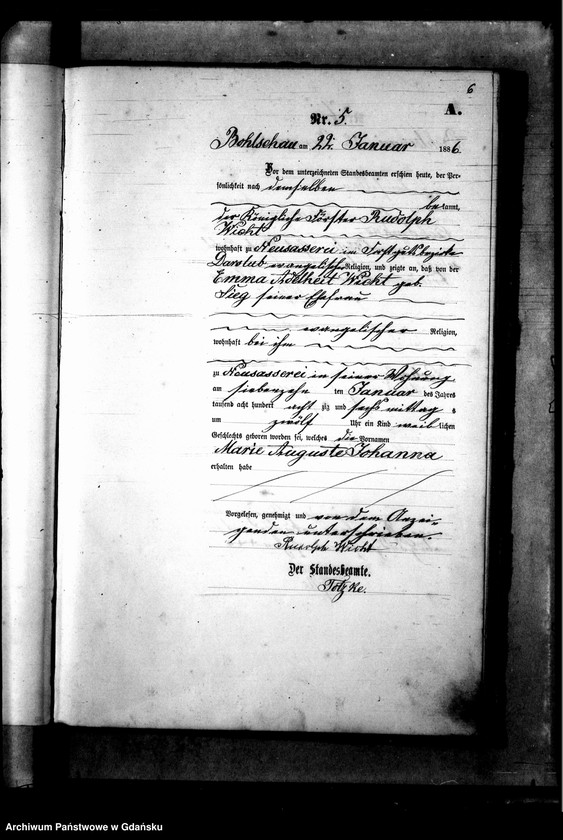 6
A.
Nr. 5.
Bohlschau am 22. Januar 1886.
Vor dem unterzeichneten Standesbeamten erschien heute, der Per-
sönlichkeit nach demselben
bekannt,
der Königliche Förster Rudolph
Wicht
wohnhaft zu Neusasserei im Forstgutsbezirke
Darslub evangelischer Religion, und zeigte an, daß von der
Emma Adelheit Wicht geb.
Sieg seiner Ehefrau
evangelischer Religion,
wohnhaft bei ihm
zu Neusasserei in seiner Wohnung
am siebenzehn ten Januar des Jahres
tausend acht hundert acht zig und sechs mittag s
um zwölf Uhr ein Kind weib lichen
Geschlechts geboren worden sei, welches die Vornamen
Marie Auguste Johanna
erhalten habe
Vorgelesen, genehmigt und von dem Anzei-
genden unterschrieben.
Rudolph Wicht
Der Standesbeamte.
Totzke.
Archiwum Państwowe w Gdańsku